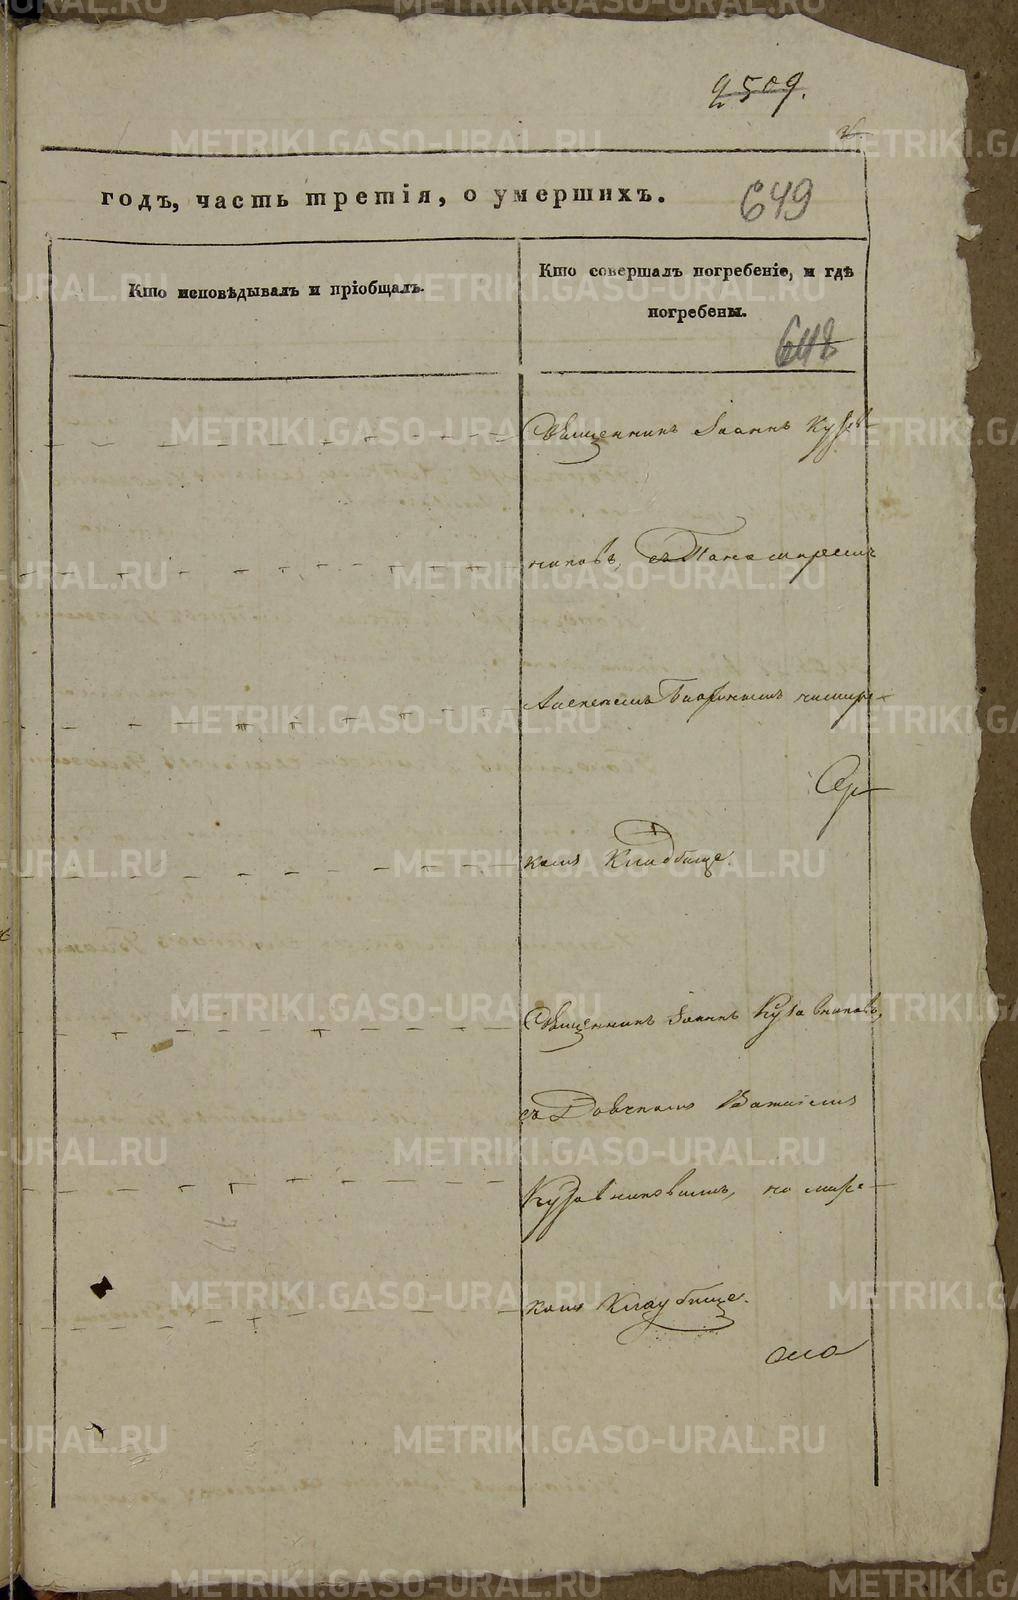 2509.
годъ, часть третія, о умершихъ.
649
Кто исповѣдывалъ и пріобщалъ.
Кто совершалъ погребеніе, и гдѣ
погребены.
648
Священникъ Іоаннъ Кузов
никовъ, съ Пономаремъ
Алексеемъ на мирс
комъ Кладбище.
Священникъ Іоаннъ Кузовниковъ,
съ Дьячкомъ
Кузовниковымъ, на мирс
комъ Кладбище.
METRIKI.GASO-URAL.RU